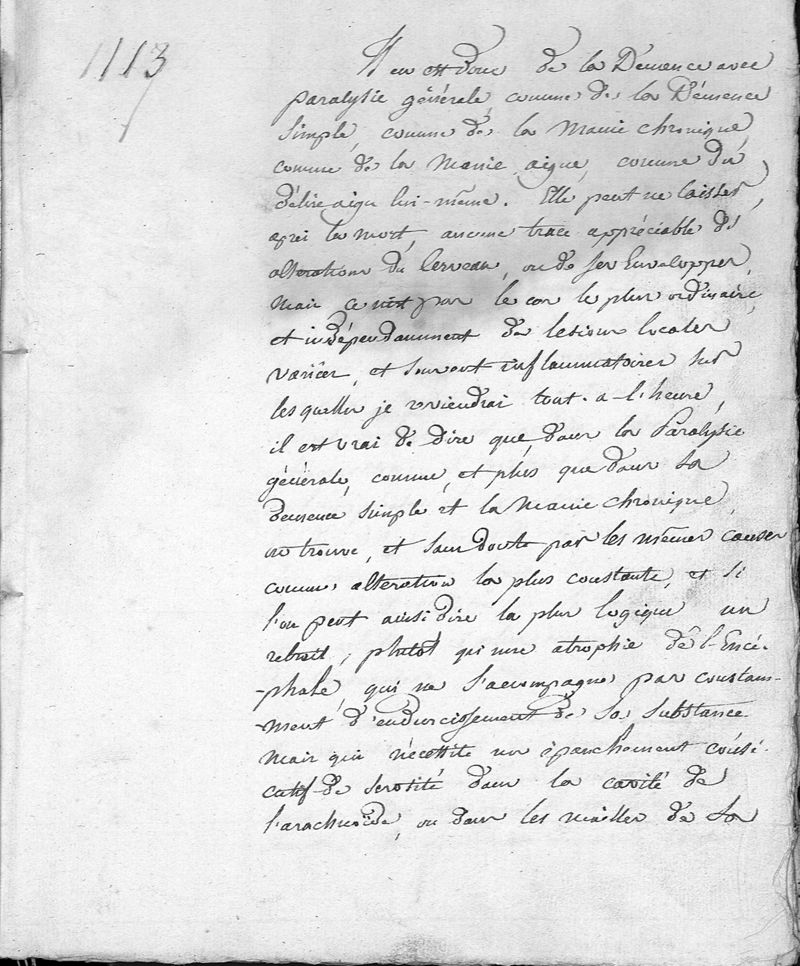 1113
Il en est donc de la Démence avec
paralysie générale, comme de la Démence
simple, comme de la manie chronique,
comme de la manie aigue, comme du
délire aigu lui-même. Elle peut ne laisser,
après la mort, aucune trace appréciable de
alterations du Cerveau, ou de ses Enveloppes,
mais ce n'est pas le cas le plus ordinaire,
et indépendamment de lesions locales
variées, et souvent inflammatoires sur
lesquelles je reviendrai tout-a-l'heure,
il est vrai de dire que, dans la Paralysie
générale, comme, et plus que dans la
demence simple et la manie chronique,
on trouve, et sans doute par les mêmes causes
comme alteration la plus constante, et si
l'on peut ainsi dire la plus logique un
retrait, plutot qu'une atrophie de l'Encé-
-phale, qui ne s'accompagne pas constam-
-ment d'endurcissement de sa substance
mais qui nécessite un épanchement consé-
cutif de serosité dans la cavité de
l'arachnoïde, ou dans les mailles de la